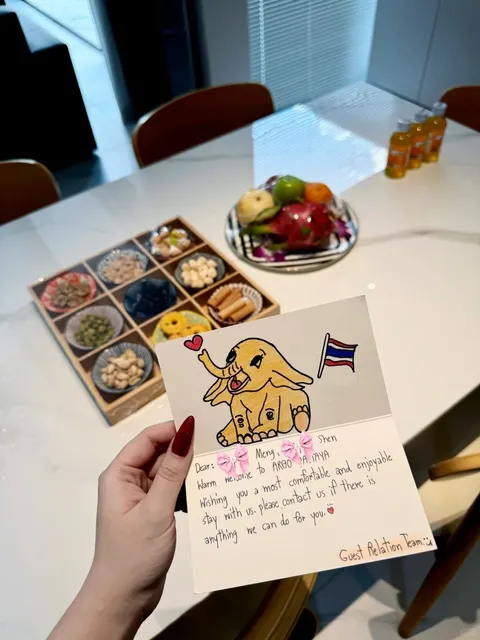 Dear: Meng, Shen
Warm welcome to
Wishing you a most comfortable and enjoyable
stay with us. please contact us if there is
anything we can do for you.
Guest Relation Team.